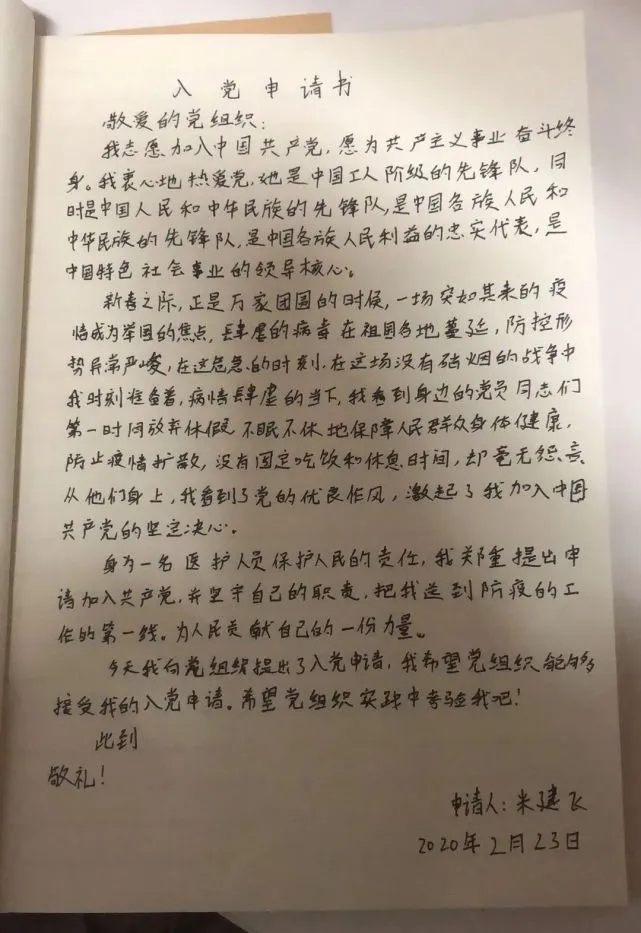 入党申请书
敬爱的党组织：
我志愿加入中国共产党，愿为共产主义事业奋斗终
身。我衷心地热爱党，她是中国工人阶级的先锋队，同
时是中国人民和中华民族的先锋队，是中国各族人民和
中华民族的先锋队，是中国各族人民利益的忠实代表，是
中国特色社会事业的领导核心。
新春之际，正是万家团圆的时候，一场突如其来的疫
情成为举国的焦点，肆虐的病毒在祖国各地蔓延，防控形
势异常严峻，在这危急的时刻，在这场没有硝烟的战争中
我时刻准备着，病情肆虐的当下，我看到身边的党员同志们
第一时间放弃休假，不眠不休地保障人民群众身体健康，
防止疫情扩散，没有固定吃饭和休息时间，却毫无怨言，
从他们身上，我看到了党的优良作风，激起了我加入中国
共产党的坚定决心。
身为一名医护人员保护人民的责任，我郑重提出申
请加入共产党，并坚牢自己的职责，把我送到防疫的工
作的第一线。为人民贡献自己的一份力量。
今天我向党组织提出了入党申请，我希望党组织能够
接受我的入党申请。希望党组织实践中考验我吧！
此到
敬礼！
申请人：米建飞
2020年2月23日